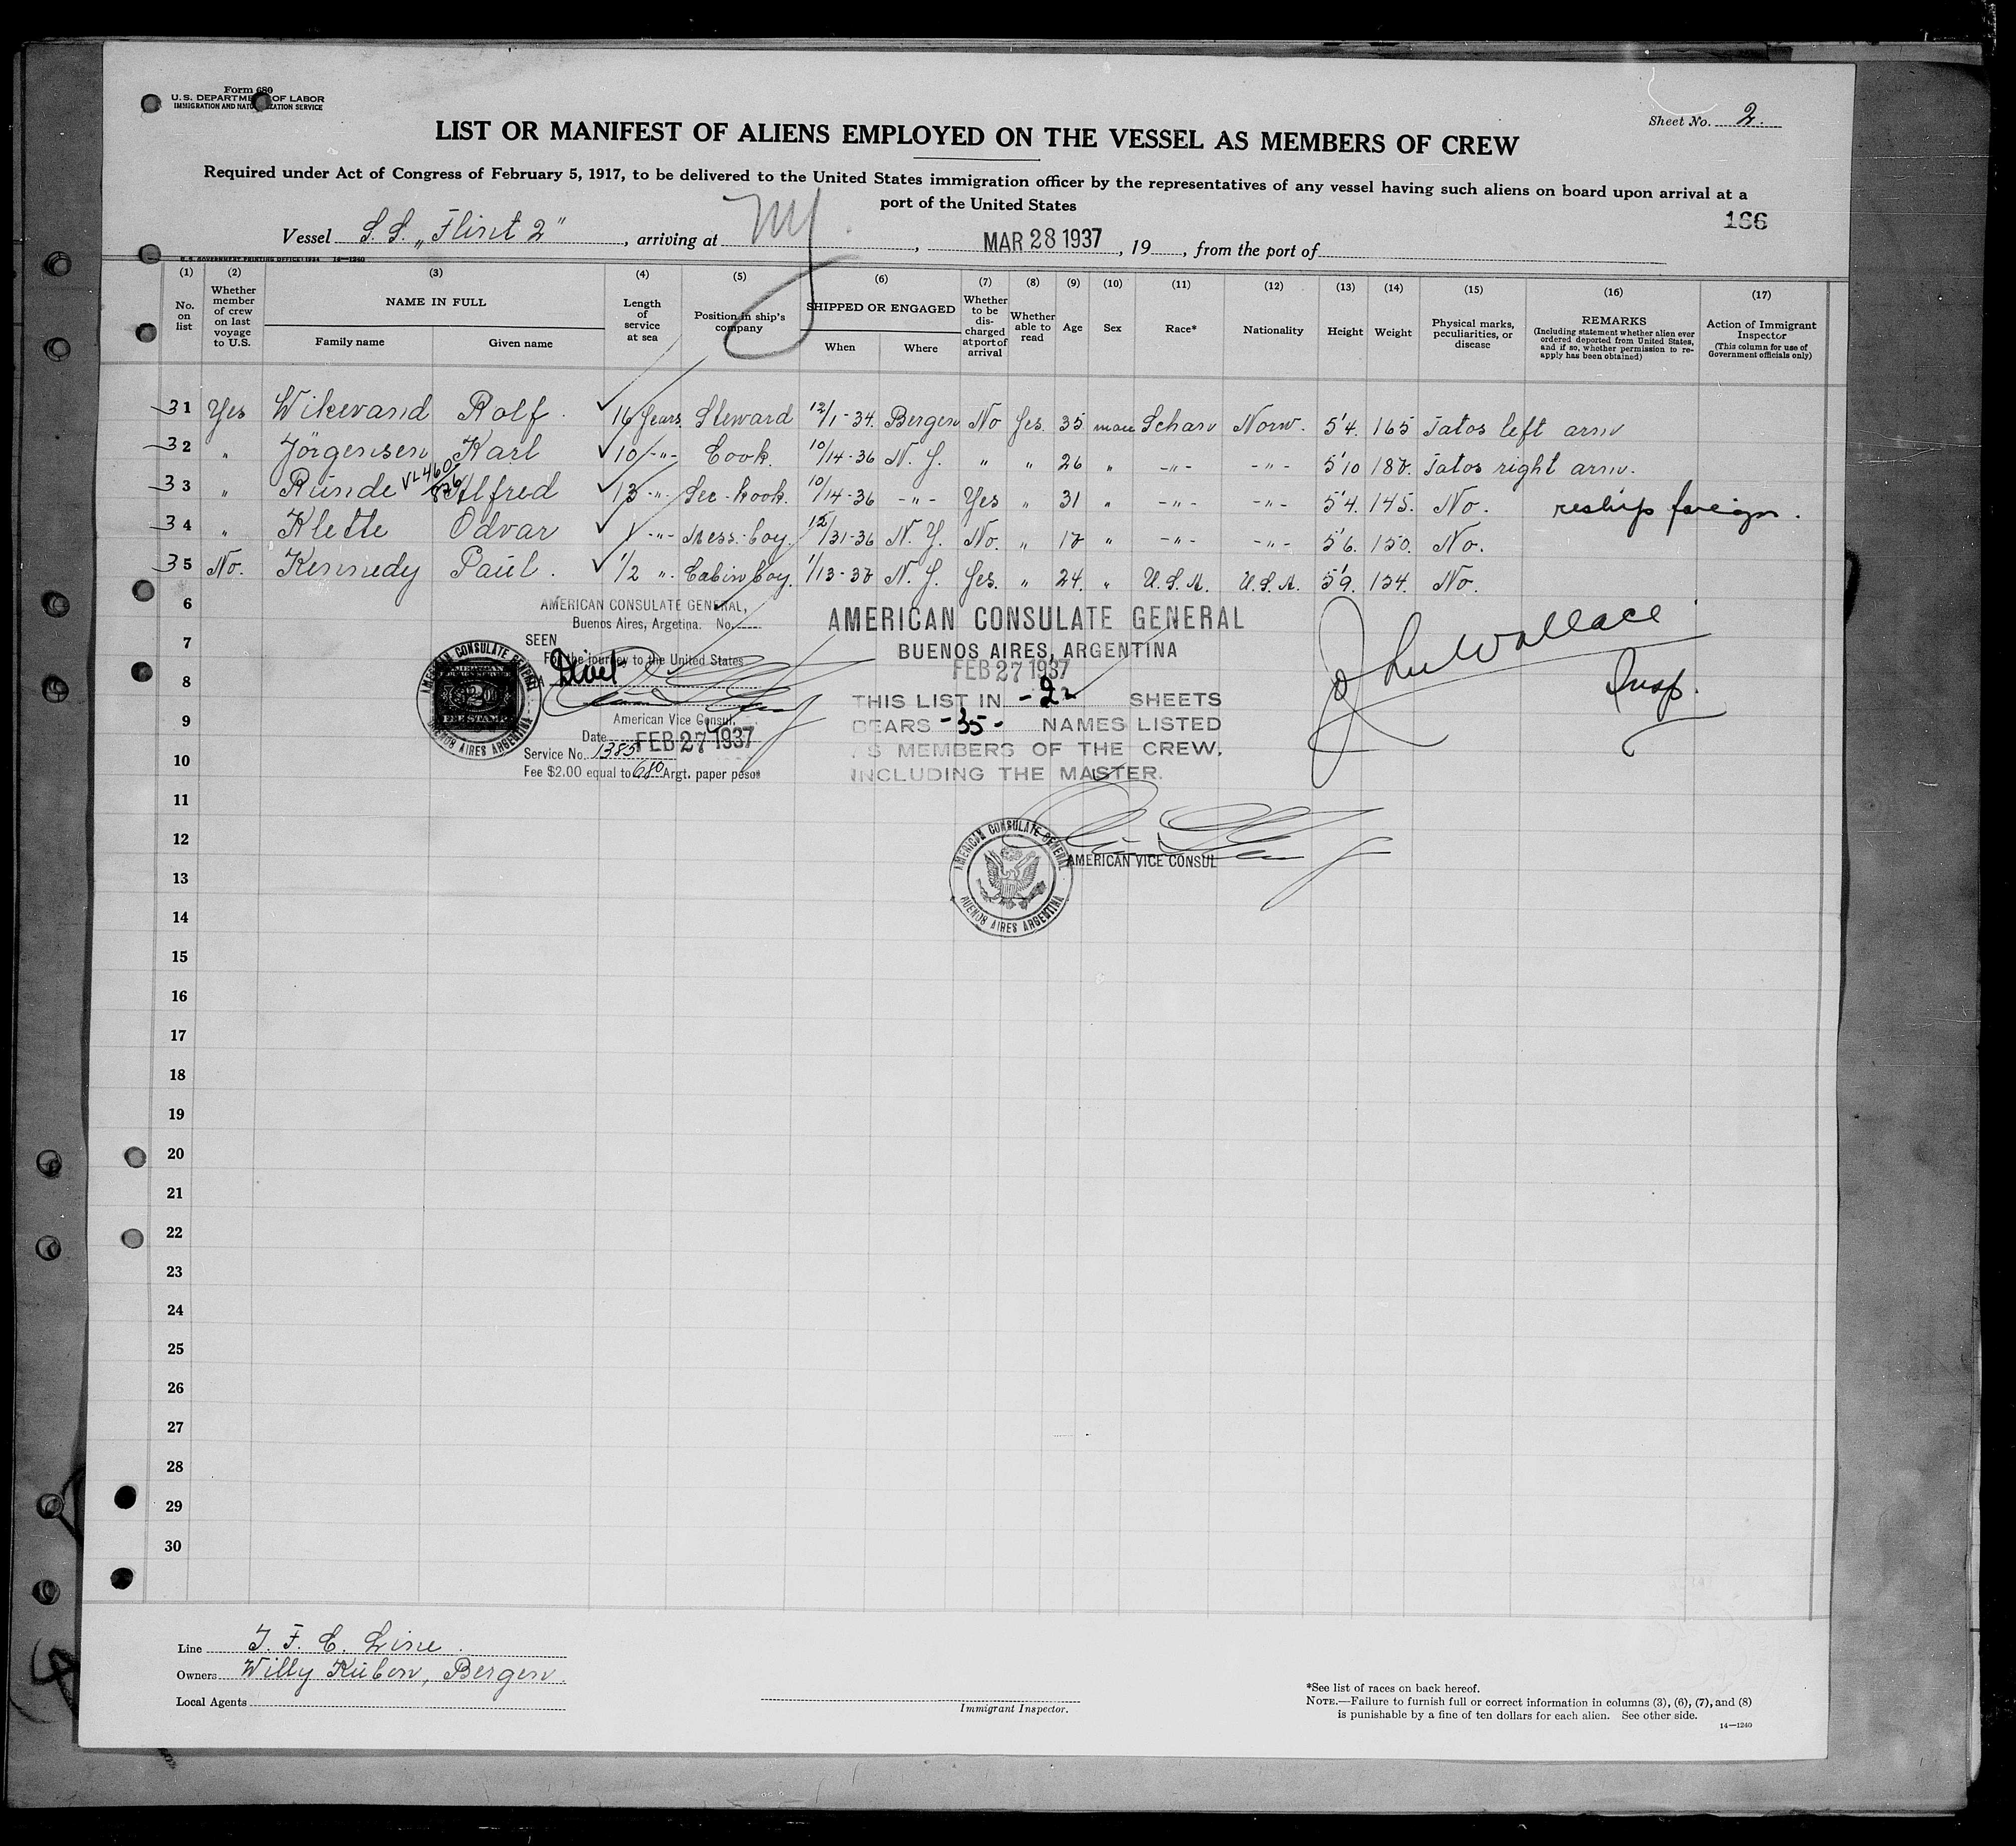 Form 680
U.S. DEPARTMENT OF LABOR
IMMIGRATION AND NATURALIZATION SERVICE
Sheet No. 2.
LIST OR MANIFEST OF ALIENS EMPLOYED ON THE VESSEL AS MEMBERS OF CREW
Required under Act of Congress of February 5, 1917, to be delivered to the United States immigration officer by the representatives of any vessel having such aliens on board upon arrival at a
port of the United States
166
Vessel S.S. „Flint 2", arriving at NY, MAR 28 1937, 19, from the port of
U.S. GOVERNMENT PRINTING OFFICE: 1934 14—1240
(1) (2) (3) (4) (5) (6) (7) (8) (9) (10) (11) (12) (13) (14) (15) (16) (17)
No. on list
Whether member of crew on last voyage to U.S.
NAME IN FULL
Family name Given name
Length of service at sea
Position in ship's company
SHIPPED OR ENGAGED
When Where
Whether to be discharged at port of arrival
Whether able to read
Age
Sex
Race*
Nationality
Height
Weight
Physical marks, peculiarities, or disease
REMARKS
(Including statement whether alien ever ordered deported from United States, and if so, whether permission to reapply has been obtained)
Action of Immigrant Inspector
(This column for use of Government officials only)
31 Yes Wikevand Rolf. 16 Years Steward 12/1-34. Bergen No Yes. 35 male Scham Norw. 5'4. 165 Tatos left arm
32 " Jörgensen Karl 10 -"- Cook. 10/14-36 N.Y. " " 26 " -"- -"- 5'10 187. Tatos right arm.
33 " Runde VL-460/876 Alfred 13 -"- Sec-kook. 10/14-36 -"- Yes " 31 " -"- -"- 5'4. 145. No. reship foreign.
34 " Klette Odvar 1 -"- Mess-boy. 12/31-36 N.Y. No. " 17 " -"- -"- 5'6. 150. No.
35 No. Kennedy Paul. 1/2 ". Cabin boy. 1/13-37 N.Y. Yes. " 24. " U.S.A. U.S.A. 5'9. 134. No.
6
7
8
9
10
11
12
13
14
15
16
17
18
19
20
21
22
23
24
25
26
27
28
29
30
AMERICAN CONSULATE GENERAL,
Buenos Aires, Argetina. No.
SEEN
For the journey to the United States
American Vice Consul.
Date FEB 27 1937
Service No. 1385
Fee $2.00 equal to Argt. paper pesos
AMERICAN CONSULATE GENERAL
BUENOS AIRES ARGENTINA
FEE STAMP
AMERICAN CONSULATE GENERAL
BUENOS AIRES, ARGENTINA
FEB 27 1937
THIS LIST IN -2- SHEETS
BEARS -35- NAMES LISTED
AS MEMBERS OF THE CREW,
INCLUDING THE MASTER.
AMERICAN VICE CONSUL
AMERICAN CONSULATE GENERAL
BUENOS AIRES ARGENTINA
John Wallace
Insp.
Line T. F. C. Line.
Owners Willy Kubon, Bergen.
Local Agents
Immigrant Inspector.
*See list of races on back hereof.
NOTE.—Failure to furnish full or correct information in columns (3), (6), (7), and (8)
is punishable by a fine of ten dollars for each alien. See other side.
14—1240